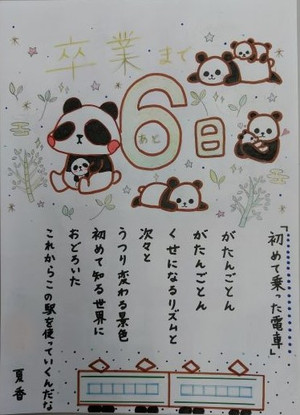 卒業まで
あと
6日
「初めて乗った電車」
がたんごとん
がたんごとん
くせになるリズムと
次々と
うつり変わる景色
初めて知る世界に
おどろいた
これからこの駅を使っていくんだな
夏香